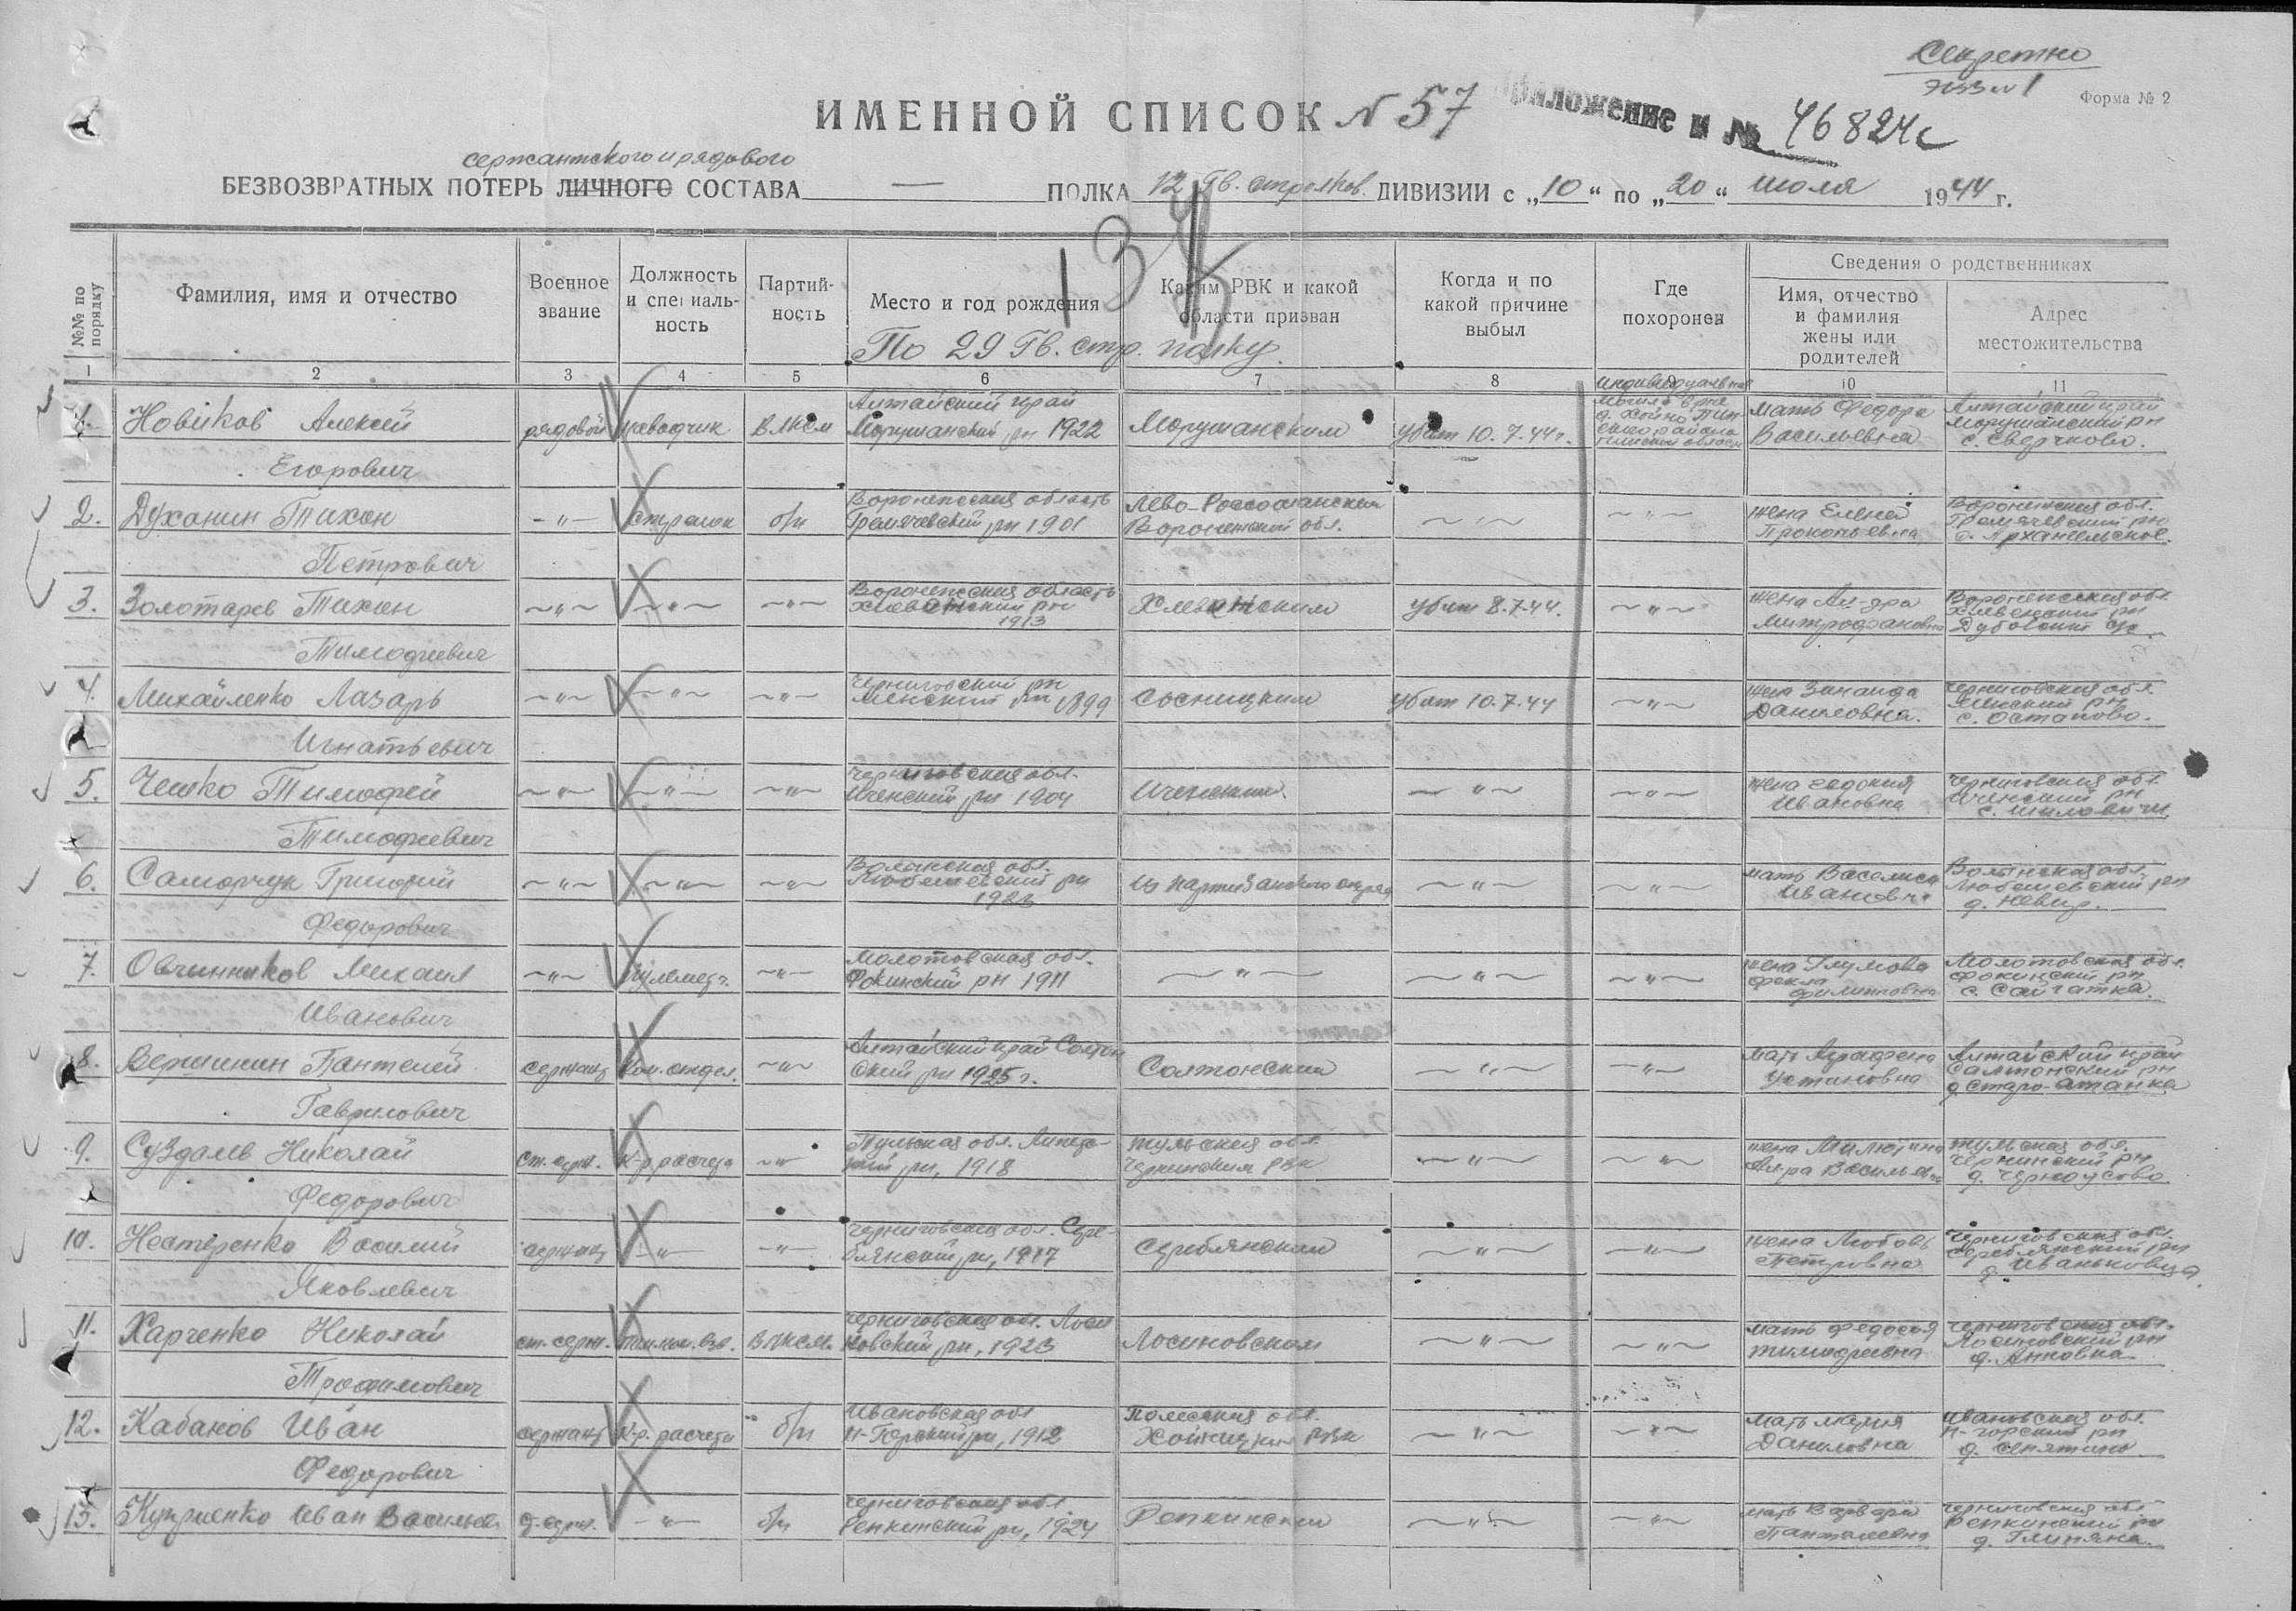 Секретно
экз № 1
Форма № 2
ИМЕННОЙ СПИСОК № 57
Приложение к № 46824с
сержантского и рядового
БЕЗВОЗВРАТНЫХ ПОТЕРЬ ЛИЧНОГО СОСТАВА — ПОЛКА 12 Гв. стрелков. ДИВИЗИИ с „10“ по „20“ июля 1944 г.
134
№№ по порядку
Фамилия, имя и отчество
Военное звание
Должность и специальность
Партийность
Место и год рождения
Каким РВК и какой области призван
Когда и по какой причине выбыл
Где похоронен
Сведения о родственниках
Имя, отчество и фамилия жены или родителей
Адрес местожительства
По 29 Гв. стр. полку
1 2 3 4 5 6 7 8 9 10 11
1. Новиков Алексей Егорович рядовой наводчик ВЛКСМ Алтайский край Марушанский рн 1922 Марушанским убит 10.7.44г. индивидуальная могила мать Федора Васильевна Алтайский край Марушанский рн с. Сверчково.
2. Духанин Тихон Петрович -"- стрелок б/п Воронежская область Гремяченский рн 1901 Лево-Россошанским Воронежской обл. -"- -"- жена Елена Прокопьевна Воронежская обл. Гремяченский рн с. Архангельское.
3. Золотарев Тихон Тимофеевич -"- -"- -"- Воронежская область Хлевенский рн 1913 Хлевенским убит 8.7.44. -"- жена Ал-дра Митрофановна Воронежская обл. Хлевенский рн Дубовский
4. Михайленко Лазарь Игнатьевич -"- -"- -"- Черниговский рн Менский рн 1899 Сосницким убит 10.7.44 -"- жена Зинаида Даниловна. Черниговская обл. Менский рн с. Остапово.
5. Чешко Тимофей Тимофеевич -"- -"- -"- Черниговская обл. Ичнеский рн 1904 Ичнеским. -"- -"- жена Евдокия Ивановна Черниговская обл. Ичнеский рн
6. Саморчук Григорий Федорович -"- -"- -"- Волынская обл. Любешевский рн 1923 Из партизанского отряда -"- -"- мать Василиса Ивановн. Волынская обл. Любешевский рн д. Невир.
7. Овчинников Михаил Иванович -"- пулемет. -"- Молотовская обл. Фокинский рн 1911 -"- -"- -"- жена Глумова Фекла Филипповна Молотовская обл. Фокинский рн с. Сайгатка.
8. Вершинин Пантелей Гаврилович сержант Ком. отдел. -"- Алтайский край Солтонский рн 1925 г. Солтонским -"- -"- мать Аграфена Устиновна Алтайский край Салтонский рн
9. Суздалев Николай Федорович ст. серж. К-р расчета -"- Тульская обл. рн, 1918 Тульская обл. Чернинским рвк -"- -"- жена Милютина Ал-ра Васильев. Тульская обл. Чернинский рн д. Черноусово.
10. Нестеренко Василий Яковлевич сержант -"- -"- Черниговская обл. Среблянский рн, 1917 Среблянским -"- -"- жена Любовь Петровна Черниговская обл. Среблянский рн д. Иваньковцы.
11. Харченко Николай Трофимович ст. серж. Пом. ком. взв. ВЛКСМ. Черниговская обл. Лосиновский рн, 1923 Лосиновским -"- -"- мать Федосья Тимофеевна Черниговская обл. Лосиновский рн д. Анновка
12. Кабанов Иван Федорович сержант К-р. расчета б/п Ивановская обл Н-Горский рн, 1912 Полесская обл. Хойницким рвк -"- -"- мать Мария Даниловна Ивановская обл. Н-Горский рн д. Сенятино.
13. Куприенко Иван Васильев. -"- б/п Черниговская обл. Репкинский рн, 1924 Репкинским -"- -"- мать Варвара Пантелеевна Черниговская обл Репкинский рн д. Глиняна.